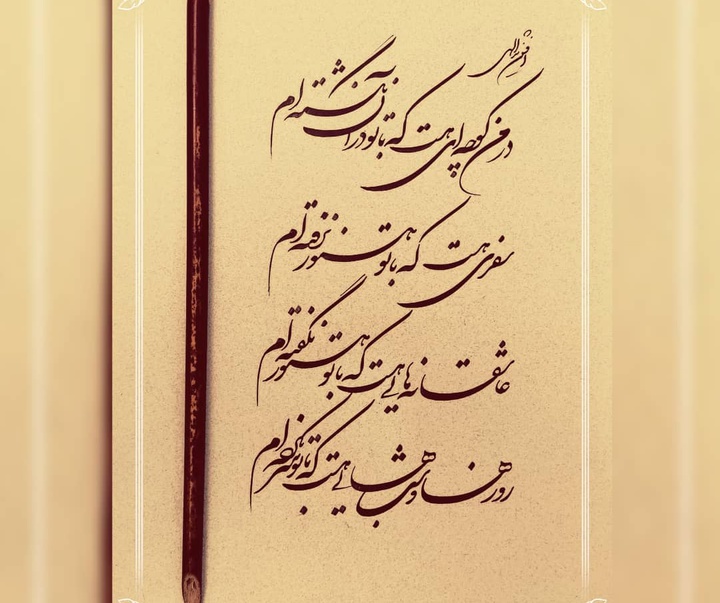 افشین یداللهی
در من کوچه ای هست که با تو در آن نگشته ام
سفری هست که با تو هنوز نرفته ام
عاشقانه هایی هست که با تو هنوز نگفته ام
روزها و شبهایی هست که با تو بسر نکرده ام